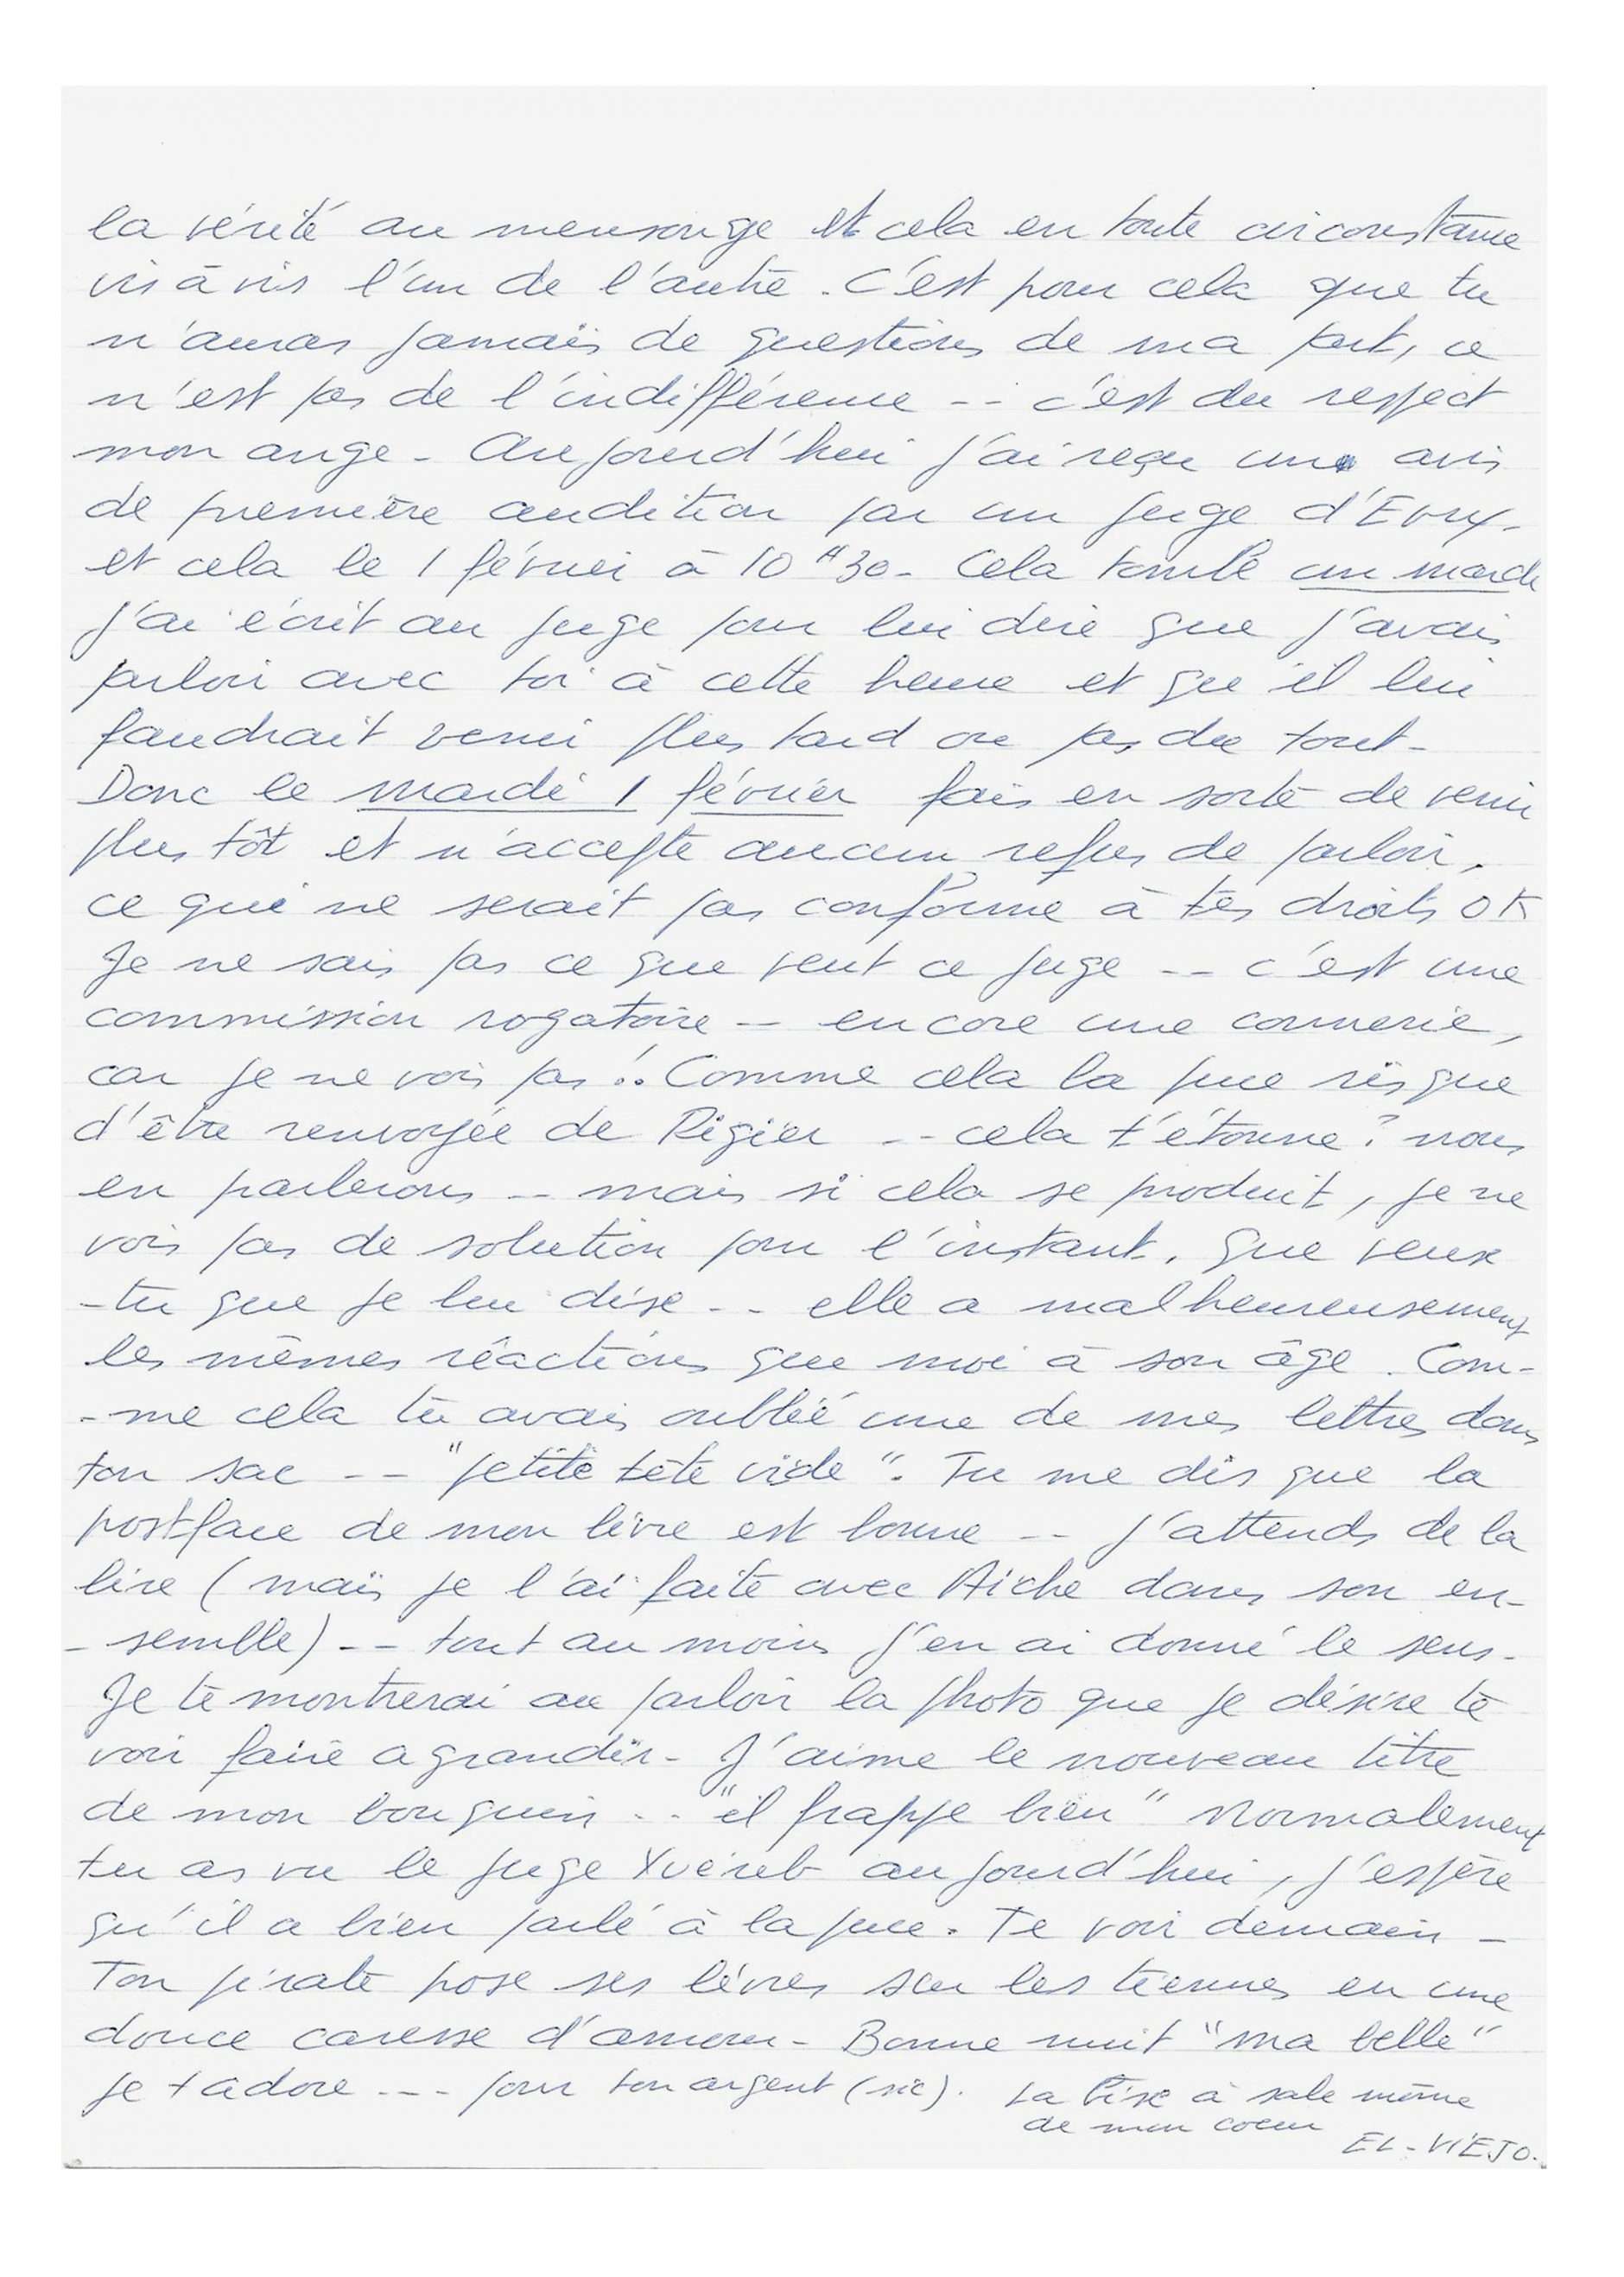 la vérité au mensonge et cela en toute circonstance
vis à vis l'un de l'autre. C'est pour cela que tu
n'auras jamais de questions de ma part, ce
n'est pas de l'indifférence -- c'est du respect
mon ange - Aujourd'hui j'ai reçu un avis
de première audition par un juge d'Evry -
et cela le 1 février à 10 H 30 - Cela tombe un mardi
j'ai écrit au juge pour lui dire que j'avais
parloir avec toi à cette heure et qu'il lui
faudrait venir plus tard ou pas du tout -
Donc le mardi 1 février fais en sorte de venir
plus tôt et n'accepte aucun refus de parloir,
ce qui ne serait pas conforme à tes droits OK
Je ne sais pas ce que veut ce juge -- c'est une
commission rogatoire -- encore une connerie,
car je ne vois pas !.. Comme cela la puce risque
d'être renvoyée de Rigier -- cela t'étonne ? nous
en parlerons -- mais si cela se produit, je ne
vois pas de solution pour l'instant. que veux
-tu que je lui dise -- elle a malheureusement
les mêmes réactions que moi à son âge. Com-
-me cela tu avais oublié une de mes lettres dans
ton sac -- "petite tête vide". Tu me dis que la
postface de mon livre est bonne -- j'attends de la
lire (mais je l'ai faite avec Aiche dans son en-
-semble) -- tout au moins j'en ai donné le sens -
Je te montrerai au parloir la photo que je désire te
voir faire agrandir - J'aime le nouveau titre
de mon bouquin -- "il frappe bien" Normalement
tu as vu le juge aujourd'hui, j'espère
qu'il a bien parlé à la puce. Te voir demain -
Ton pirate pose ses lèvres sur les tiennes en une
douce caresse d'amour - Bonne nuit "ma belle"
je t'adore --- pour ton argent (sic). La bise à sale môme
de mon coeur
EL-VIEJO.